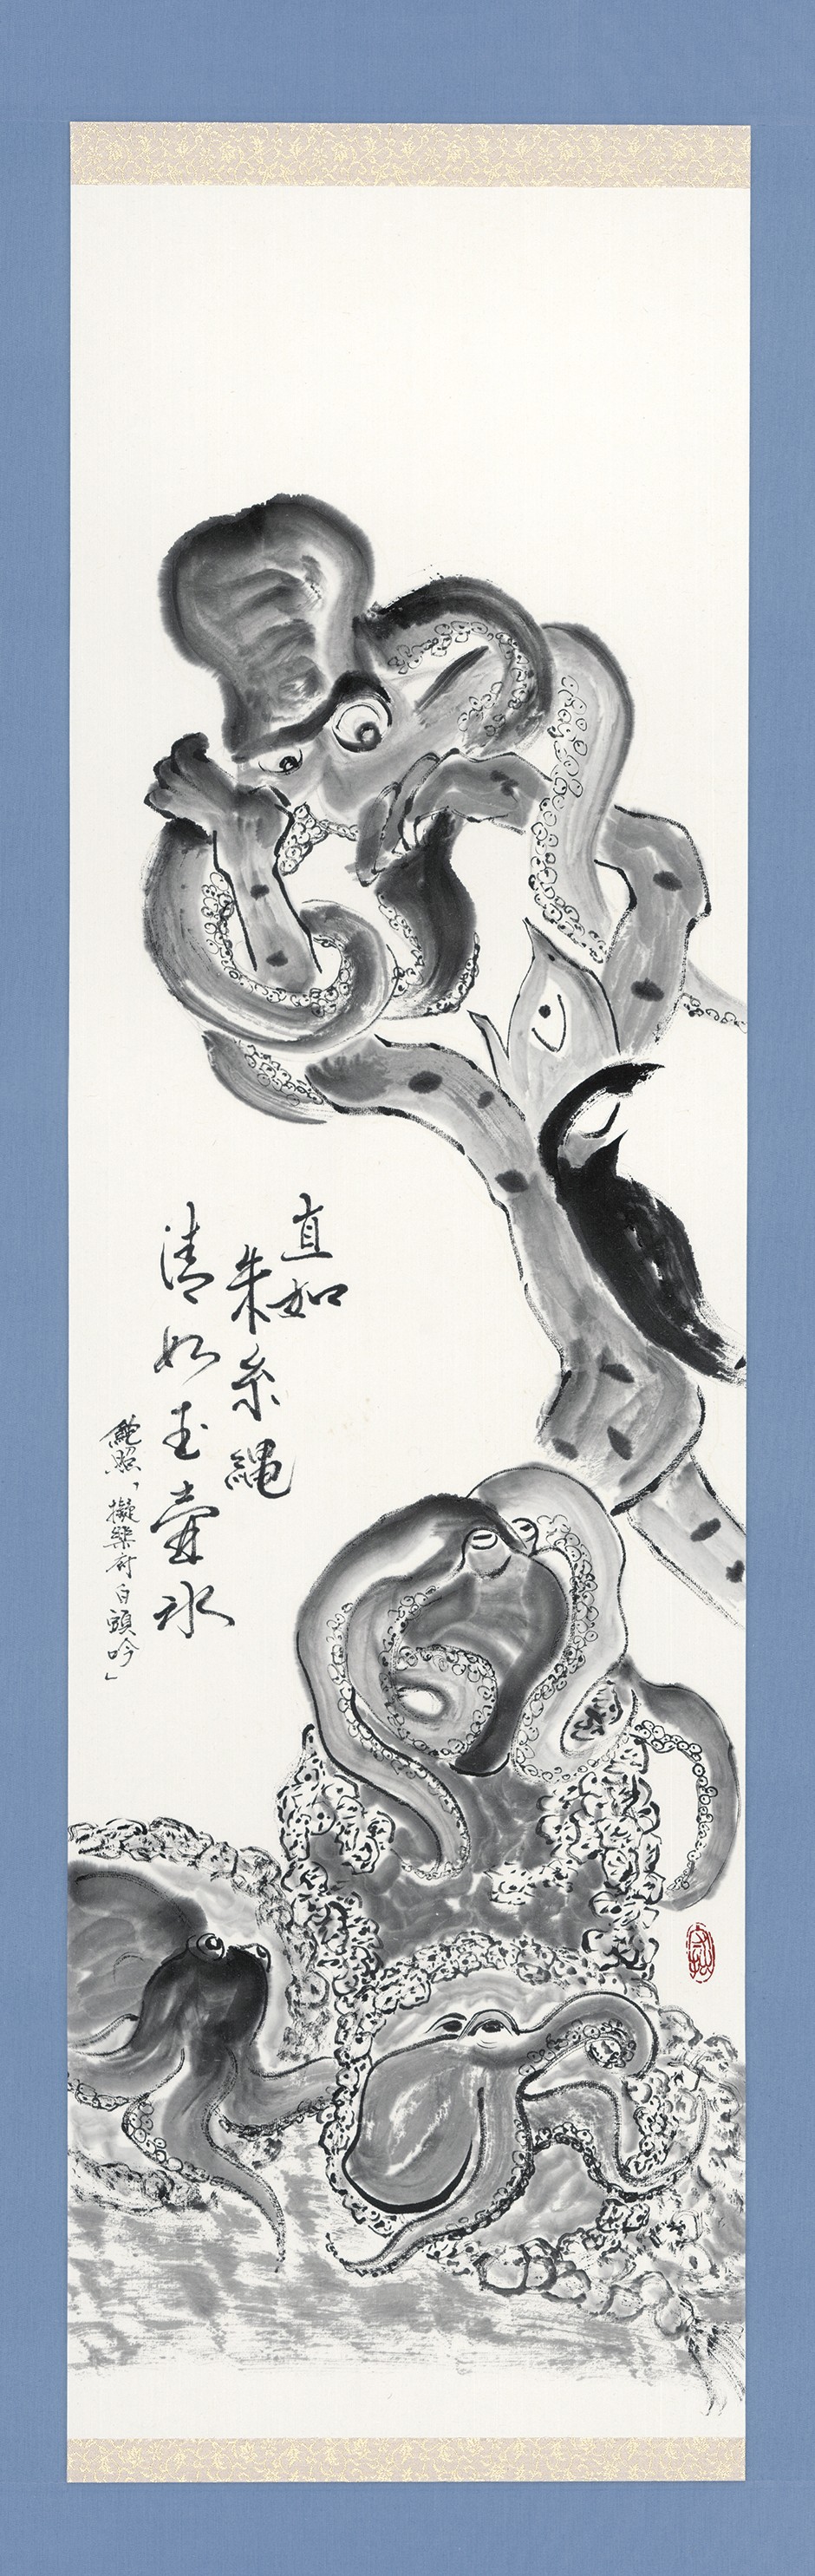 直如
朱糸縄
清如玉壷氷
鮑照「擬樂府白頭吟」